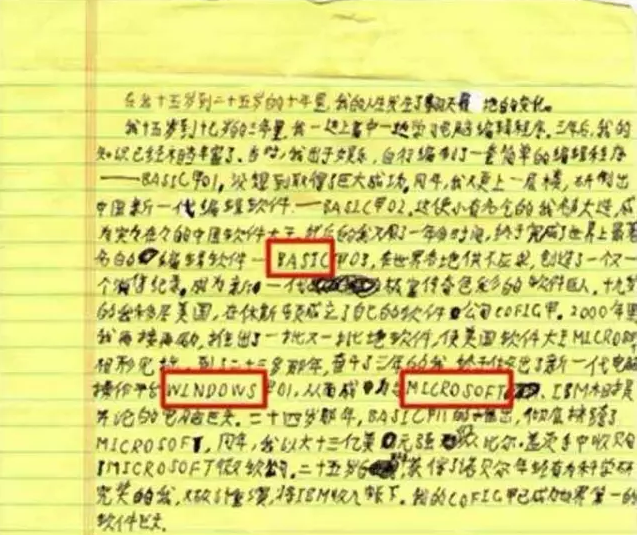 在我十五岁到二十五岁的十年里,我的人生发生了翻天覆地的变化。
我十五岁到十八岁的三年里,我一边上高中一边学习电脑编辑程序。三年后,我的
知识已经相当丰富了。当时,我出于娱乐,自行编制了一套简单的编辑程序
——BASIC甲01,没想到取得了巨大成功。同年,我又更上一层楼,研制出
中国新一代编辑软件——BASIC甲02,这使小有名气的我名声大进,成
为实实在在的中国软件大王。然后的我又用了一年的时间,终于完成了世界上最著
名的编辑软件—BASIC甲03,在世界各地供不应求,创造了一个又一
个销售纪录,成为新一代极富传奇色彩的软件巨人。十九岁
的我移居美国,在休斯顿成立了自己的软件公司COFIG甲。2000年里
我再接再励,推出了一批又一批地软件,使美国软件大王MICROS
相形见拙,到了二十三岁那年,奋斗了三年的我终于推出了新一代电脑
操作平台WINDOWS甲01,从而成为与MICROSOFT、IBM相提并
论的电脑巨头。二十四岁那年,BASIC甲11的推出,彻底挤跨了
MICROSOFT,同年,我以大十三亿美元强从比尔·盖茨手中收购
了MICROSOFT微软公司。二十五岁时,获得了诺贝尔年轻有为科学研
究奖的我,将IBM收入帐下。我的COFIG甲已成为世界第一的
软件巨头。